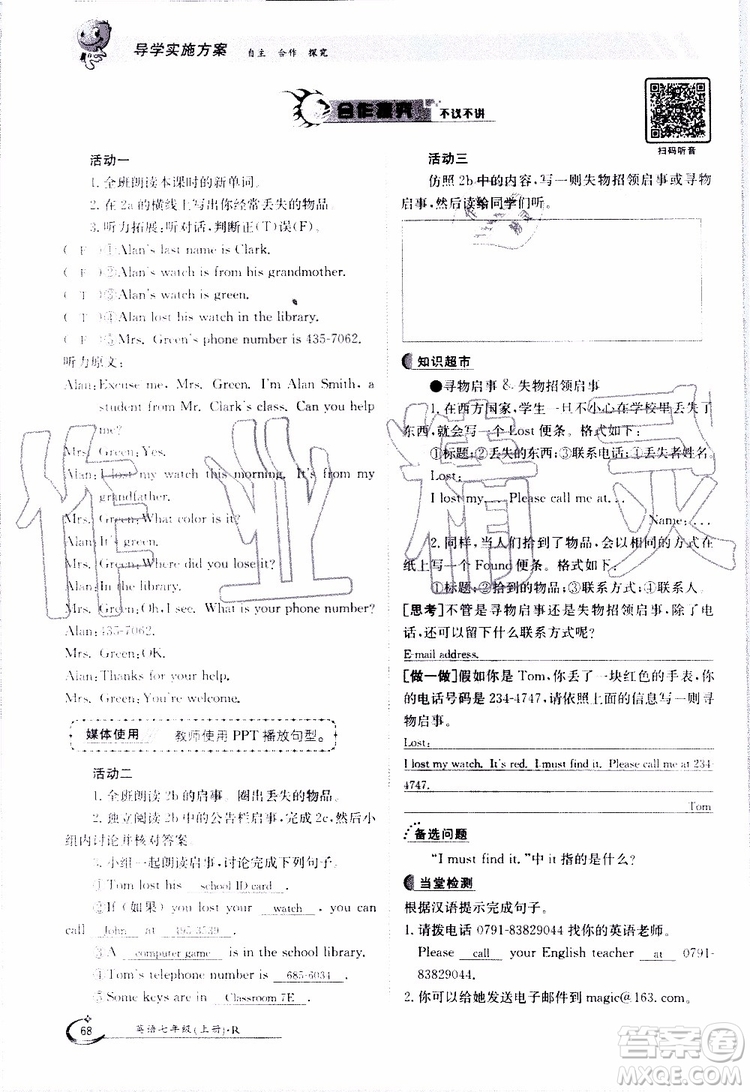 导学实施方案 自主 合作 探究
合作探究 不议不讲
扫码听音
活动一
1. 全班朗读本课时的新单词。
2. 在2a的横线上写出你经常丢失的物品
3. 听力拓展：听对话，判断正(T)误(F)。
( F )①Alan's last name is Clark.
( F )②Alan's watch is from his grandmother.
( )③Alan's watch is green.
( )④Alan lost his watch in the library.
( )⑤Mrs. Green's phone number is 435-7062.
听力原文：
Alan: Excuse me, Mrs. Green. I'm Alan Smith, a
student from Mr. Clark's class. Can you help
me?
Mrs. Green: Yes.
Alan: I lost my watch this morning. It's from my
grandfather.
Mrs. Green: What color is it?
Mrs. Green: Where did you lose it?
Alan: In the library.
Mrs. Green: Oh, I see. What is your phone number?
Alan: 435-7062.
Mrs. Green: OK.
Alan: Thanks for your help.
Mrs. Green: You're welcome.
媒体使用 教师使用PPT播放句型。
活动二
1. 全班朗读2b的启事。圈出丢失的物品。
2. 独立阅读2b中的公告栏启事，完成2c，然后小
组内讨论并核对答案。
3. 小组一起朗读启事，讨论完成下列句子。
①Tom lost his school ID card .
②If（如果）you lost your watch , you can
call John at 495-3539 .
③A computer game is in the school library.
④Tom's telephone number is 685-6034 .
⑤Some keys are in Classroom 7E .
68 英语七年级(上册)·R
活动三
仿照2b中的内容，写一则失物招领启事或寻物
启事，然后读给同学们听。
知识超市
●寻物启事 & 失物招领启事
1. 在西方国家，学生一旦不小心在学校里丢失了
东西，就写一个Lost便条。格式如下：
①标题；②丢失的东西；③联系电话；④丢失者姓名。
Lost:
I lost my... Please call me at...
Name: ...
2. 同样，当人们拾到了物品，也会以同样的方式在
纸上写一个Found便条。格式如下：
①标题；②拾到的物品；③联系方式
[思考]不管是寻物启事还是失物招领启事，除了
电话，还可以留下什么联系方式呢？
E-mail address.
[做一做]假如你是Tom，你丢了一块红色的手表，你
的电话号码是234-4747，请依据上面的信息写一则寻
物启事。
Lost:
I lost my watch. It's red. I must find it. Please call me at 234-
4747.
Tom
备选问题
“I must find it.”中it指的是什么？
当堂检测
根据汉语提示完成句子。
1. 请拨电话0791-83829044找你的英语老师。
Please call your English teacher at 0791-
83829044.
2. 你可以给她发送电子邮件至magic@163.com。